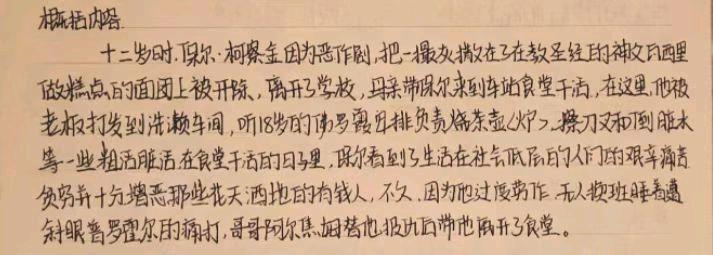 概括内容
十二岁时,保尔·柯察金因为恶作剧,把一撮灰撒在了在教圣经的神父瓦西里
做糕点的面团上被开除,离开了学校,母亲带保尔来到车站食堂干活,在这里,他被
老板打发到洗漱车间,听18岁的佛罗霞安排负责烧茶壶<炉>、擦刀叉和倒脏水
等一些粗活脏活.在食堂干活的日子里,保尔看到了生活在社会低层的人们的艰辛痛苦
贫穷并十分憎恶那些花天酒地的有钱人,不久,因为他过度劳作,无人换班睡着遭
斜眼普罗霍尔的痛打,哥哥阿尔焦姆替他报仇后带他离开了食堂。